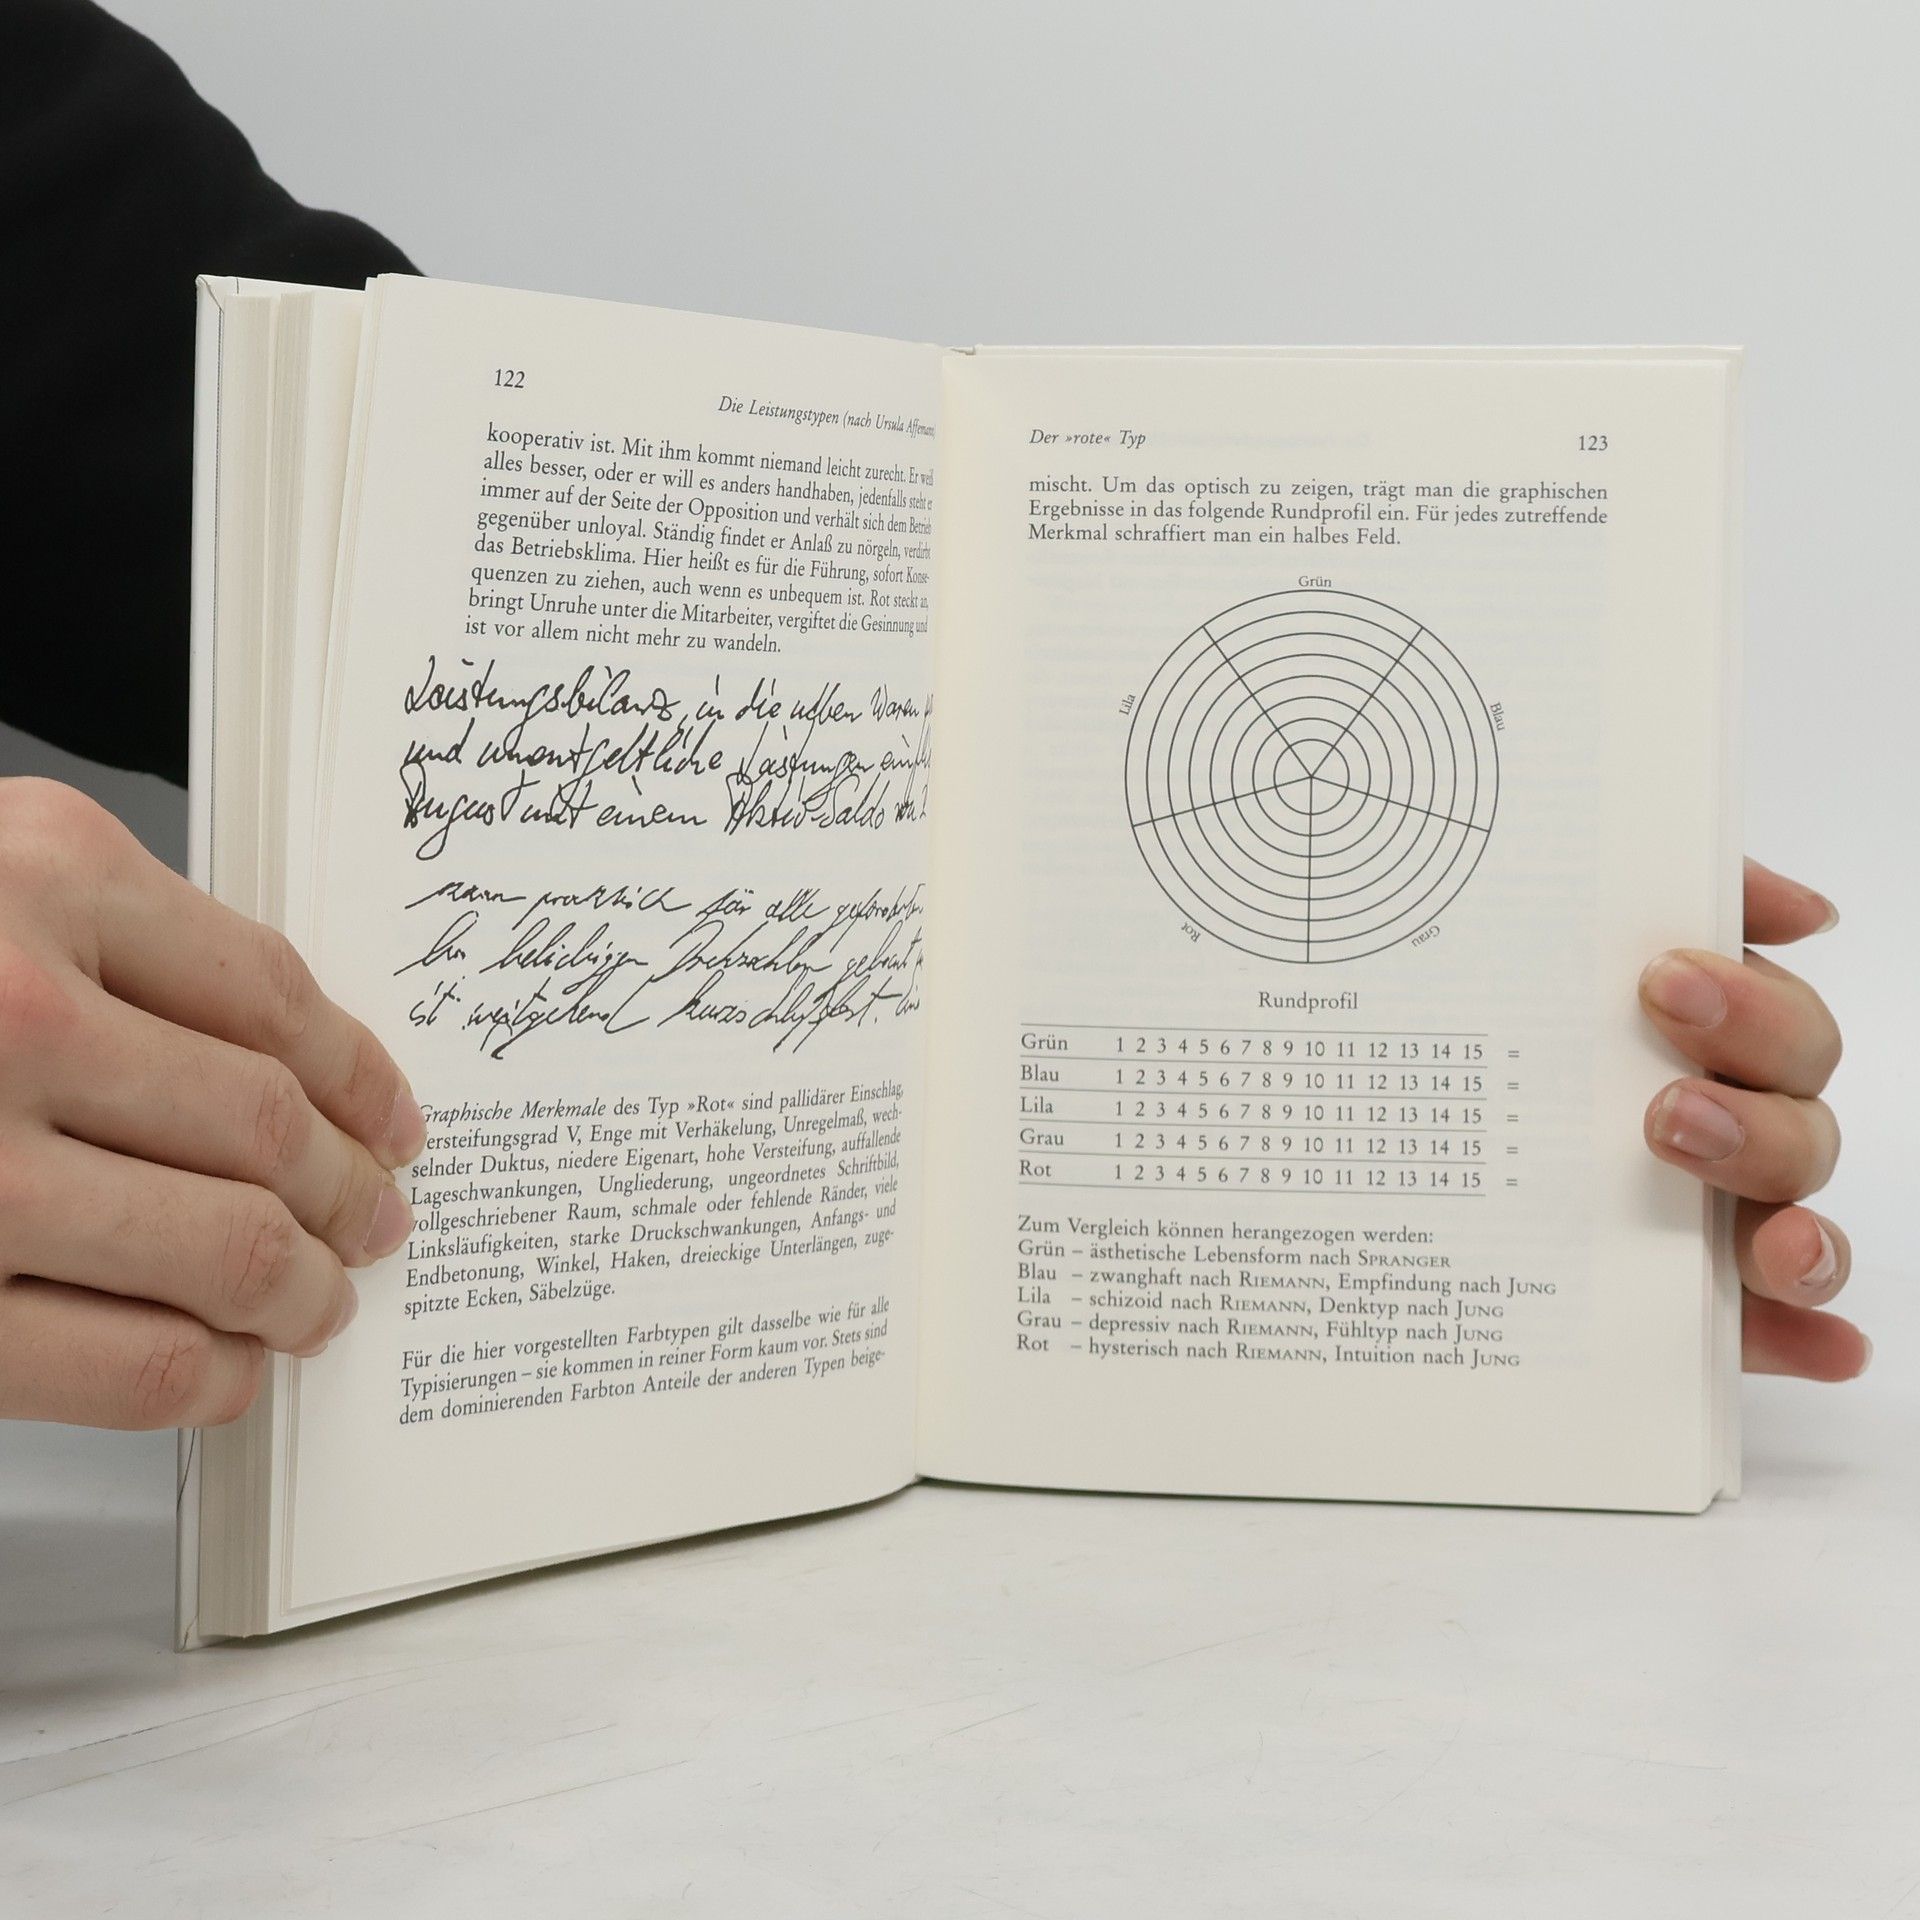 122
Die Leistungstypen (nach Ursula Affemann)
kooperativ ist. Mit ihm kommt niemand leicht zurecht. Er weiß
alles besser, oder er will es anders handhaben, jedenfalls steht er
immer auf der Seite der Opposition und verhält sich dem Betrieb
gegenüber unloyal. Ständig findet er Anlaß zu nörgeln, verdirbt
das Betriebsklima. Hier heißt es für die Führung, sofort Konse-
quenzen zu ziehen, auch wenn es unbequem ist. Rot steckt an,
bringt Unruhe unter die Mitarbeiter, vergiftet die Gesinnung und
ist vor allem nicht mehr zu wandeln.
Leistungsbilanz, in die neben Waren
und unentgeltliche Leistungen
August mit einem Aktiv-Saldo
praktisch für alle
beliebigen Drehzahlen gebaut
ist weitgehend kurzschlußfest.
Graphische Merkmale des Typ »Rot« sind pallidärer Einschlag,
Versteifungsgrad V, Enge mit Verhäkelung, Unregelmaß, wech-
selnder Duktus, niedere Eigenart, hohe Versteifung, auffallende
Lageschwankungen, Ungliederung, ungeordnetes Schriftbild,
vollgeschriebener Raum, schmale oder fehlende Ränder, viele
Linksläufigkeiten, starke Druckschwankungen, Anfangs- und
Endbetonung, Winkel, Haken, dreieckige Unterlängen, zuge-
spitzte Ecken, Säbelzüge.
Für die hier vorgestellten Farbtypen gilt dasselbe wie für alle
Typisierungen – sie kommen in reiner Form kaum vor. Stets sind
dem dominierenden Farbton Anteile der anderen Typen beige-
Der »rote« Typ 123
mischt. Um das optisch zu zeigen, trägt man die graphischen
Ergebnisse in das folgende Rundprofil ein. Für jedes zutreffende
Merkmal schraffiert man ein halbes Feld.
Grün
Lila
Blau
Rot
Grau
Rundprofil
Grün 1 2 3 4 5 6 7 8 9 10 11 12 13 14 15 =
Blau 1 2 3 4 5 6 7 8 9 10 11 12 13 14 15 =
Lila 1 2 3 4 5 6 7 8 9 10 11 12 13 14 15 =
Grau 1 2 3 4 5 6 7 8 9 10 11 12 13 14 15 =
Rot 1 2 3 4 5 6 7 8 9 10 11 12 13 14 15 =
Zum Vergleich können herangezogen werden:
Grün – ästhetische Lebensform nach SPRANGER
Blau – zwanghaft nach RIEMANN, Empfindung nach JUNG
Lila – schizoid nach RIEMANN, Denktyp nach JUNG
Grau – depressiv nach RIEMANN, Fühltyp nach JUNG
Rot – hysterisch nach RIEMANN, Intuition nach JUNG